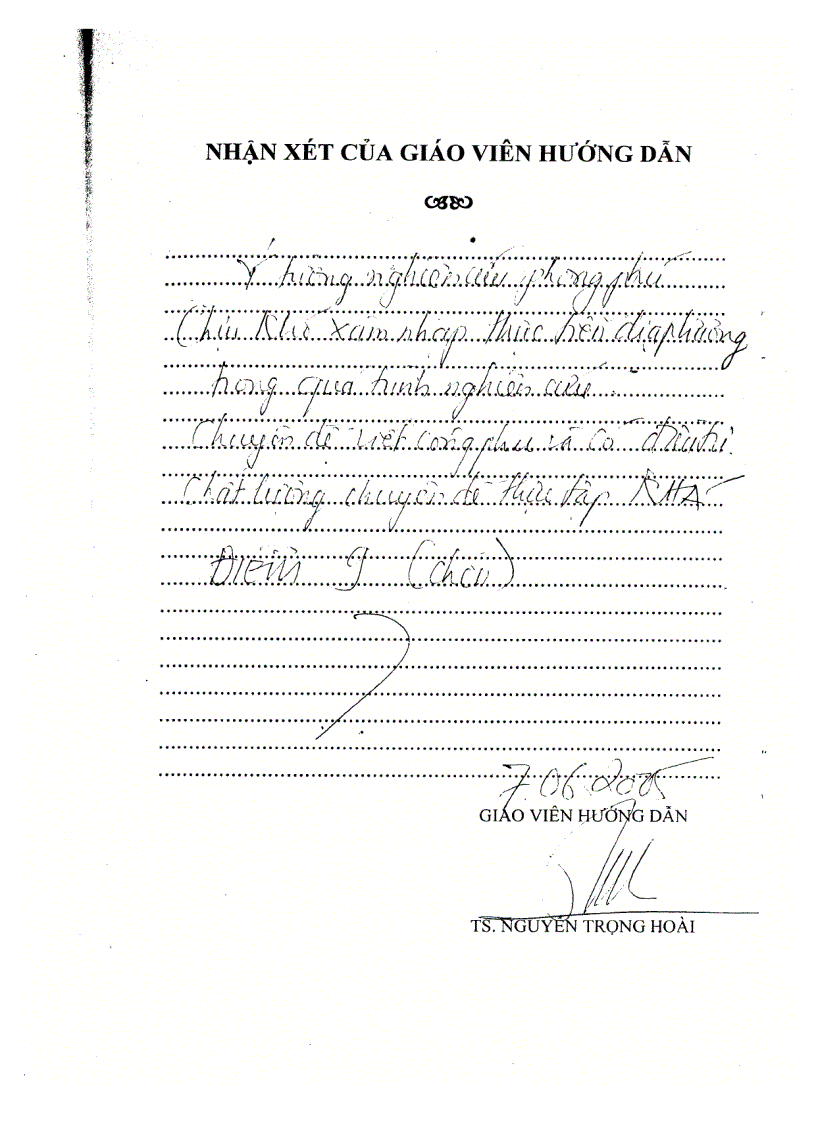 NHẬN XÉT CỦA GIÁO VIÊN HƯỚNG DẪN
Ý tưởng nghiên cứu phong phú
Chịu khó xâm nhập thực tiễn địa phương
trong quá trình nghiên cứu.
Chuyên đề viết công phu và có
Chất lượng chuyên đề thực tập KHÁ
ĐIỂM 9 (chín)
7.06.2005
GIÁO VIÊN HƯỚNG DẪN
TS. NGUYỄN TRỌNG HOÀI